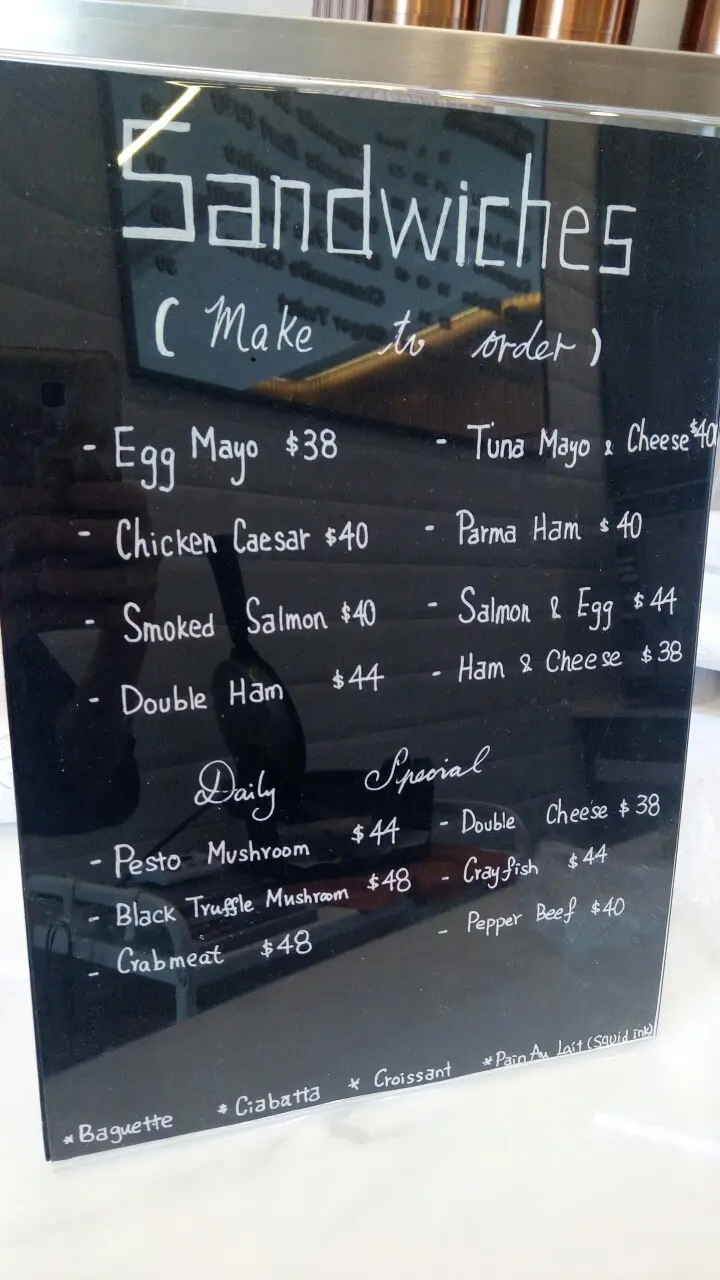 Sandwiches
( Make to order )
- Egg Mayo $38
- Chicken Caesar $40
- Smoked Salmon $40
- Double Ham $44
- Tuna Mayo & Cheese $40
- Parma Ham $40
- Salmon & Egg $44
- Ham & Cheese $38
Daily Special
- Pesto Mushroom $44
- Black Truffle Mushroom $48
- Crabmeat $48
- Double Cheese $38
- Crayfish $44
- Pepper Beef $40
*Baguette * Ciabatta * Croissant *Pain Au Lait (Squid ink)